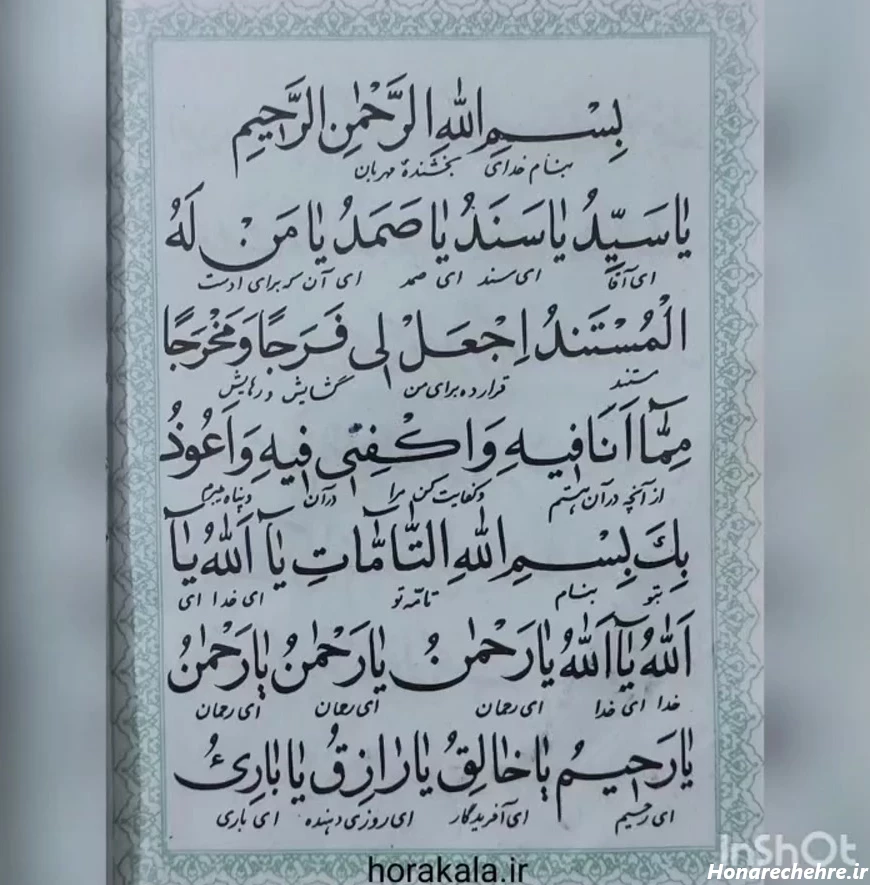 بِسْمِ اللهِ الرَّحْمٰنِ الرَّحیمِ
بنام خدای بخشندهٔ مهربان
یٰا سَیِّدُ یٰا سَنَدُ یٰا صَمَدُ یٰا مَنْ لَهُ
ای آقا ای سند ای صمد ای آن که برای اوست
الْمُسْتَنَدُ اِجْعَلْ لی فَرَجًا وَ مَخْرَجًا
مستند قرار ده برای من گشایش و رهایش
مِمّٰٓا اَنَا فیهِ وَ اکْفِنی فیهِ وَ اَعُوذُ
از آنچه در آن هستم و کفایت کن مرا در آن و پناه میبرم
بِكَ بِسْمِ اللهِ التّٰآمّٰاتِ یٰآ اَللهُ یٰآ
بتو بنام تامّه تو ای خدا ای
اَللهُ یٰآ اَللهُ یٰا رَحْمٰنُ یٰا رَحْمٰنُ یٰا رَحْمٰنُ
خدا ای خدا ای رحمان ای رحمان ای رحمان
یٰا رَحیمُ یٰا خٰالِقُ یٰا رٰازِقُ یٰا بٰارِئُ
ای رحیم ای آفریدگار ای روزی دهنده ای باری
InShOt
horakala.ir
Honarechehre.ir